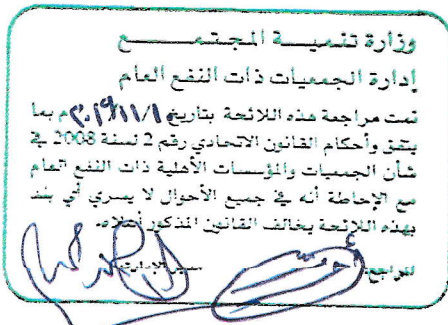 وزارة تنمية المجتمع
إدارة الجمعيات ذات النفع العام
تمت مراجعة هذه اللائحة بتاريخ ٢٠١٩/١١/١م بما
يتفق وأحكام القانون الاتحادي رقم 2 لسنة 2008 في
شأن الجمعيات والمؤسسات الأهلية ذات النفع العام
مع الإحاطة أنه في جميع الأحوال لا يسري أي بند
بهذه اللائحة يخالف القانون المذكور أعلاه.
المراجع: مدير الإدارة